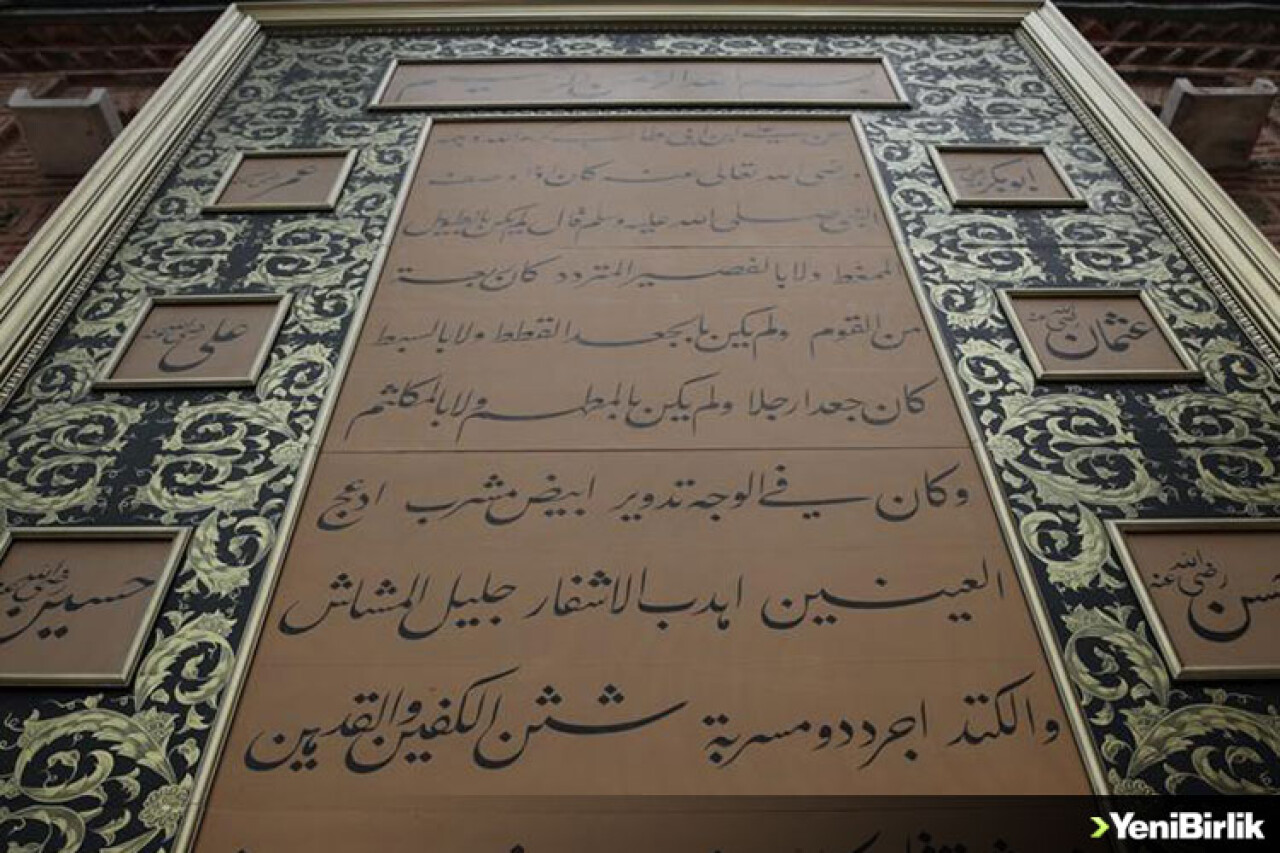 بسم الله الرحمن الرحيم
عن علي ابن ابي طالب كرم الله وجهه
رضى الله تعالى عنه كان اذا وصف
النبي صلى الله عليه وسلم قال لم يكن بالطويل
الممغط ولا بالقصير المتردد كان ربعة
من القوم ولم يكن بالجعد القطط ولا بالسبط
كان جعدا رجلا ولم يكن بالمطهم ولا بالمكلثم
وكان في الوجه تدوير ابيض مشرب ادعج
العينين اهدب الاشفار جليل المشاش
والكتد اجرد ذو مسربة شثن الكفين والقدمين
ابو بكر
عمر رضى الله عنه
عثمان رضى الله عنه
على رضى الله عنه
حسن رضى الله عنه
حسين رضى الله عنه
YeniBirlik